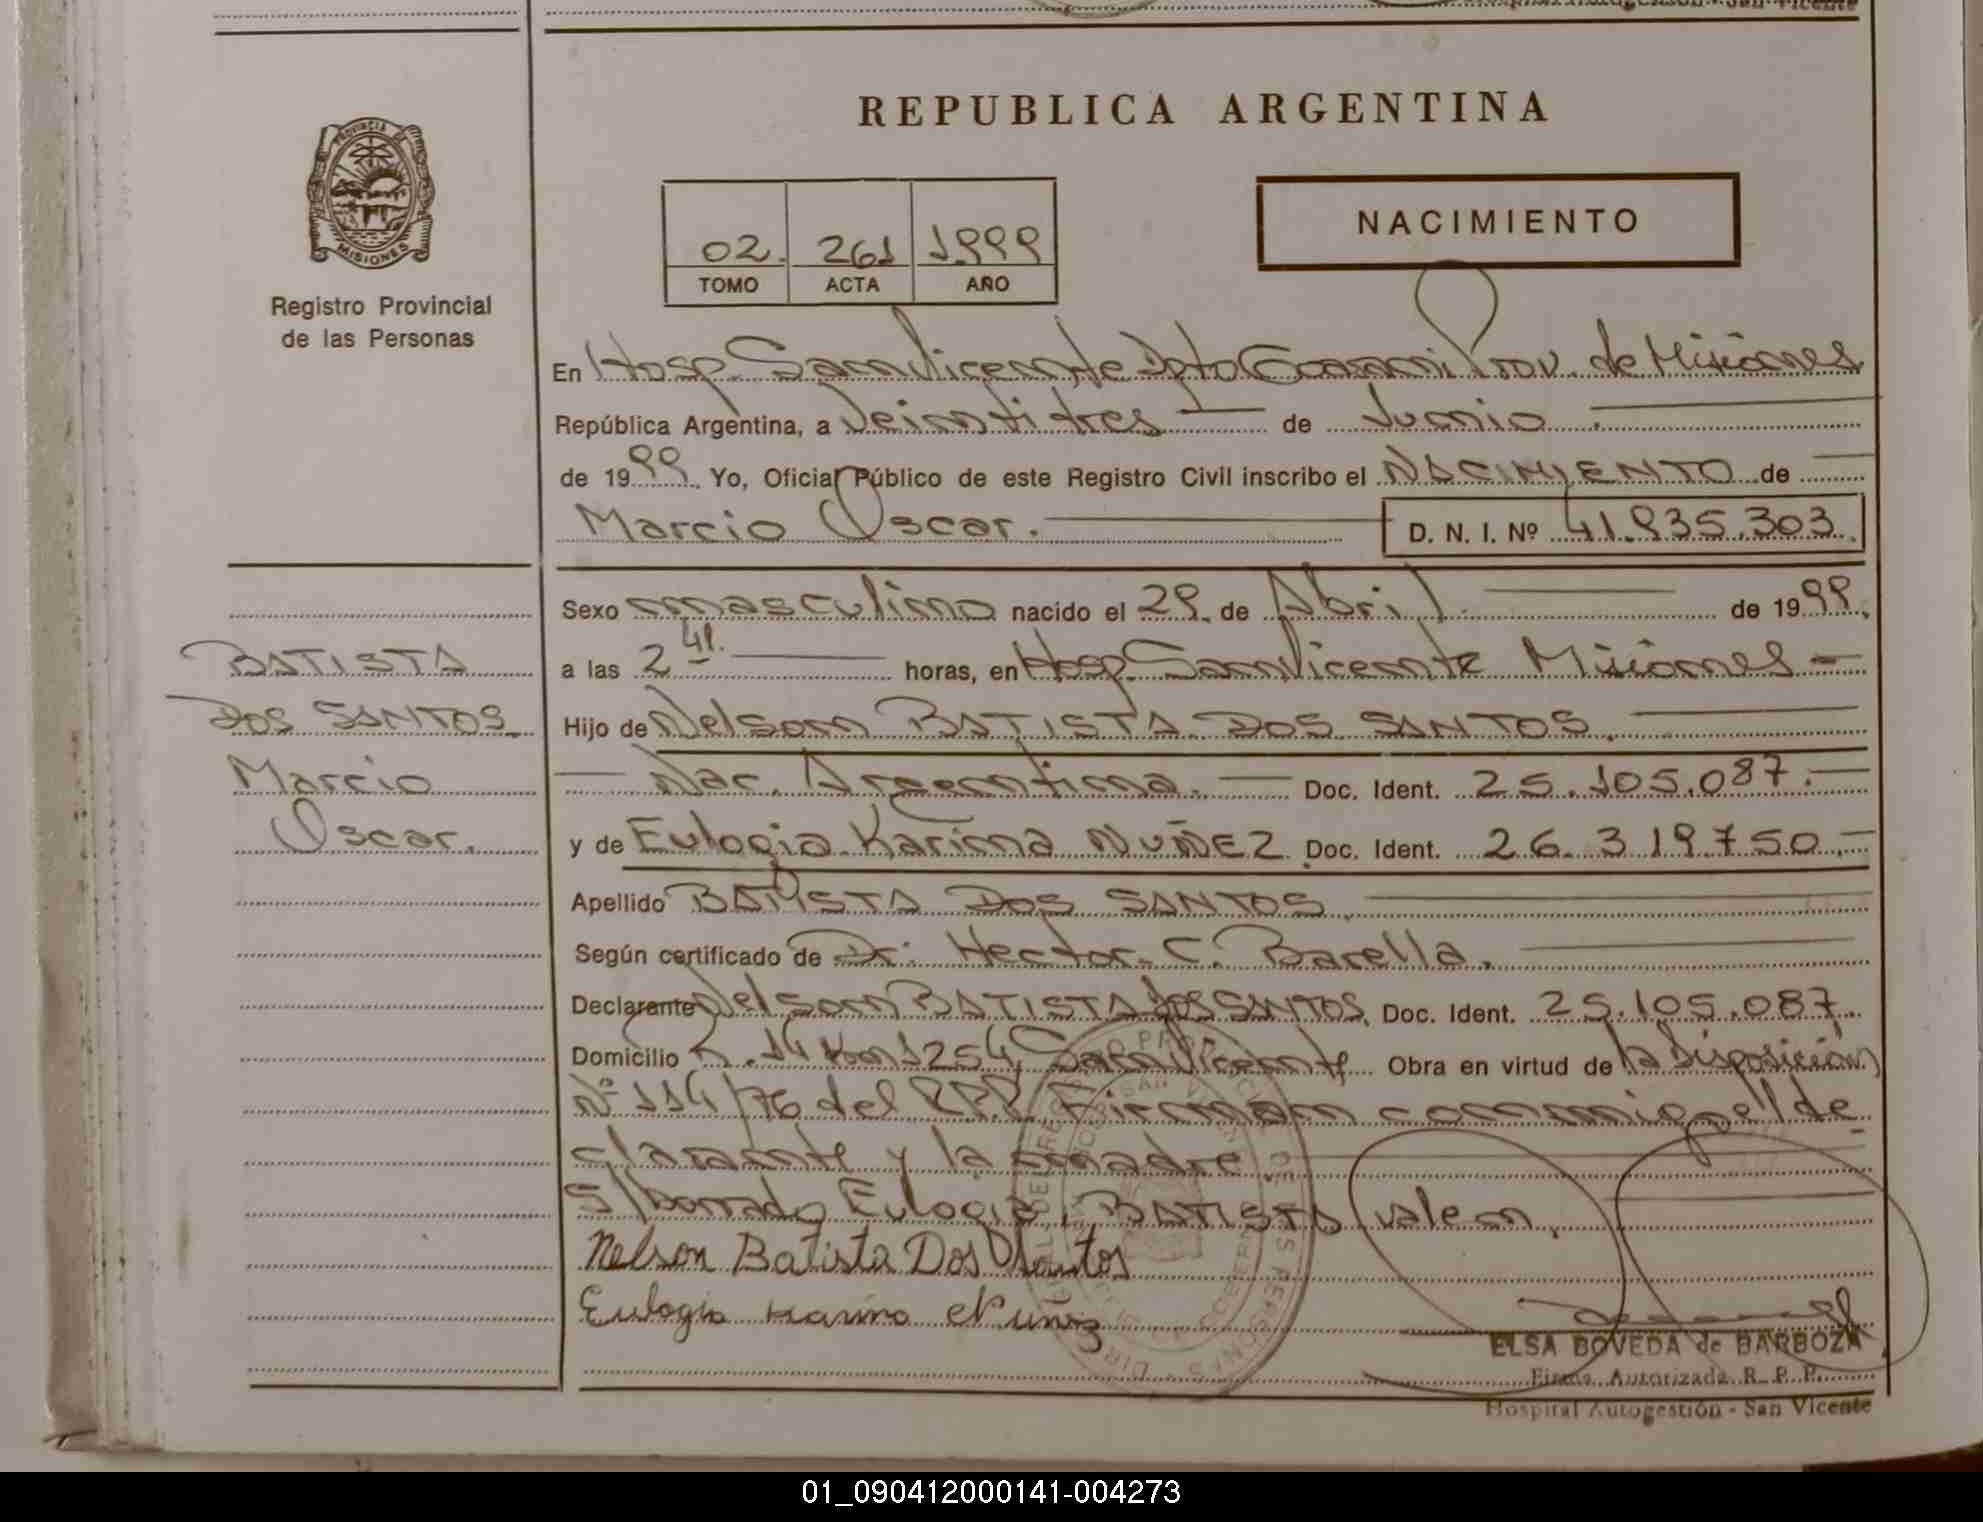 REPUBLICA ARGENTINA
PROVINCIA
MISIONES
Registro Provincial
de las Personas
NACIMIENTO
02. 261 1.999
TOMO ACTA AÑO
En Hosp. San Vicente Dpto Guaraní Prov. de Misiones
República Argentina, a Veintitres de Junio
de 1999 Yo, Oficial Público de este Registro Civil inscribo el NACIMIENTO de
Marcio Oscar. D. N. I. Nº 41.835.303
Sexo masculino nacido el 29 de Abril de 1999.
a las 2 41. horas, en Hosp. San Vicente Misiones
Hijo de Nelson BATISTA DOS SANTOS.
Nac. Argentina. Doc. Ident. 25.105.087.
y de Eulogia Karina NUÑEZ Doc. Ident. 26.319.750
Apellido BATISTA DOS SANTOS
Según certificado de Dr. Hector C. Barella.
Declarante Nelson BATISTA DOS SANTOS, Doc. Ident. 25.105.087.
Domicilio R. 14 Km 1254, San Vicente. Obra en virtud de la Disposición
Nº 114/76 del R.P.P. Firman conmigo el de
clarante y la madre.
S/borrado Eulogia, BATISTA valen.
Nelson Batista Dos Santos
Eulogia Karina Nuñez
ELSA BOVEDA de BARBOZA
Firma Autorizada R. P. P.
Hospital Autogestión - San Vicente
BATISTA
DOS SANTOS
Marcio
Oscar.
01_090412000141-004273